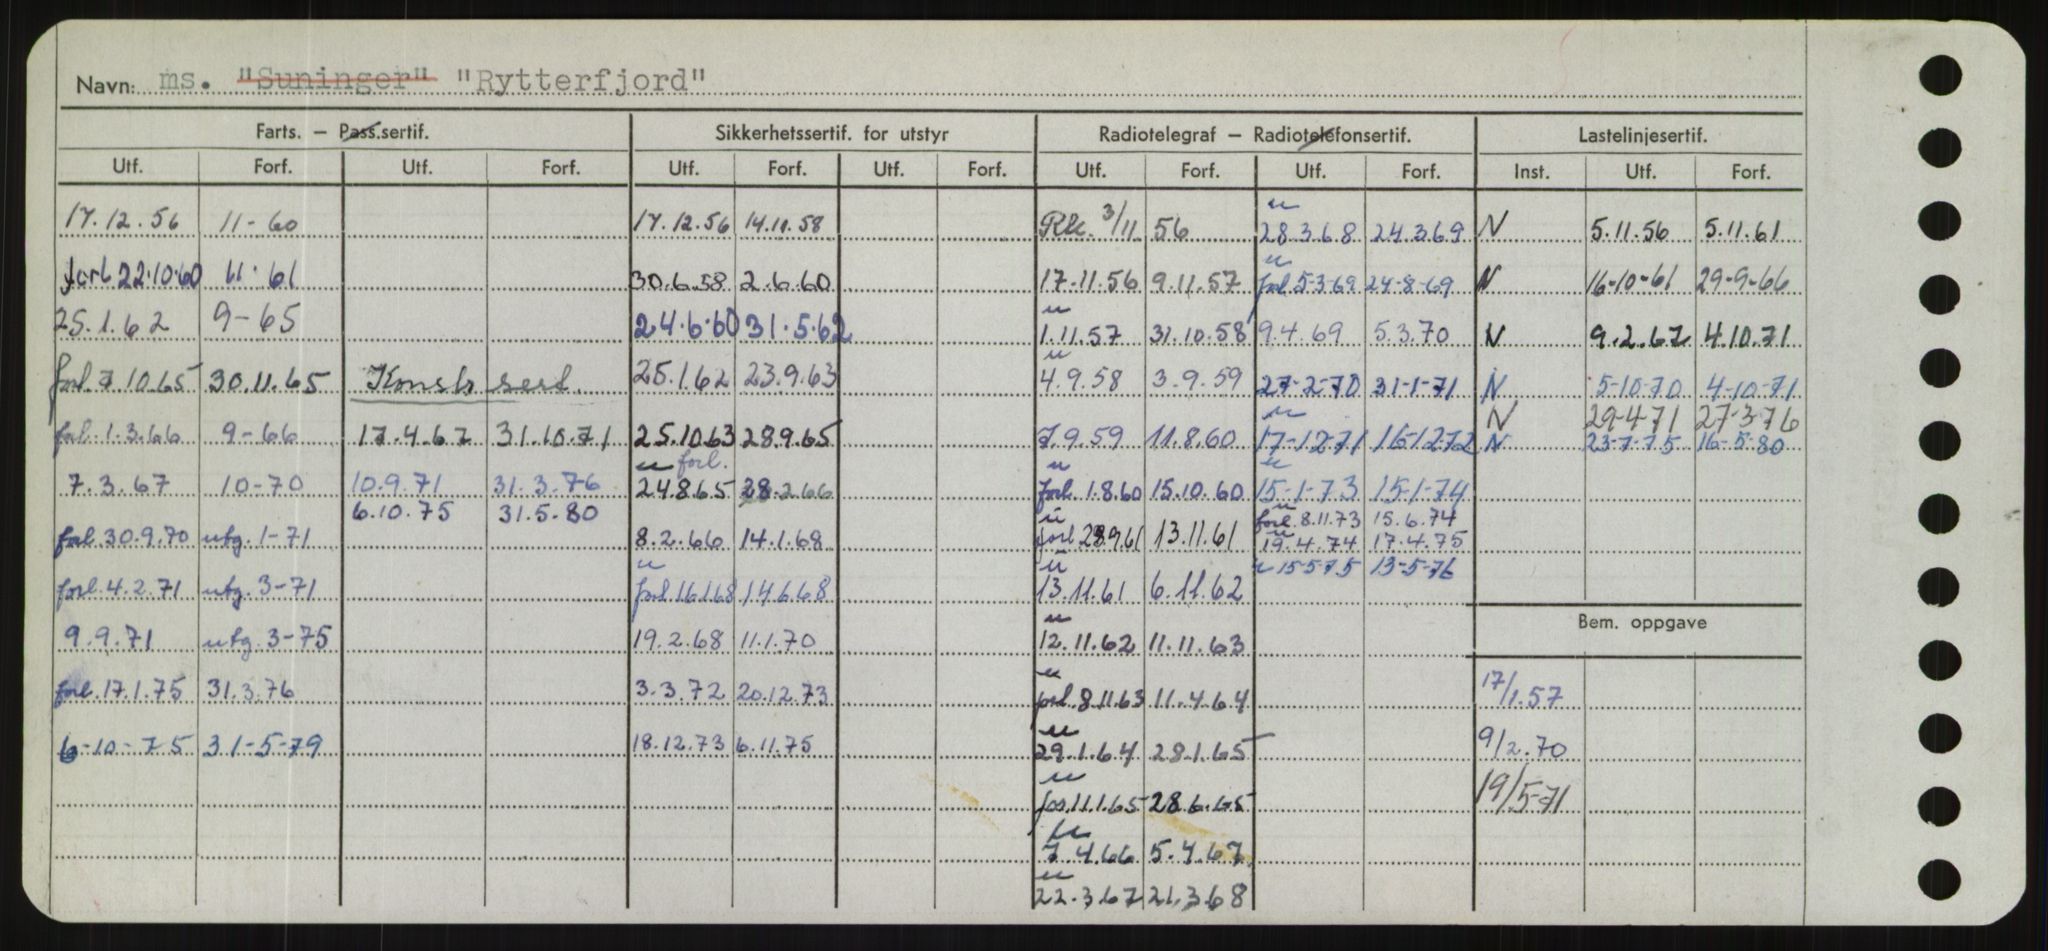 Navn: ms. "Suninger" "Rytterfjord"
Farts. – Pass.sertif. Sikkerhetssertif. for utstyr Radiotelegraf – Radiotelefonsertif. Lastelinjesertif.
Utf. Forf. Utf. Forf. Utf. Forf. Utf. Forf. Utf. Forf. Utf. Forf. Inst. Utf. Forf.
u
17.12.56 11-60 17.12.56 14.11.58 3/11 56 28.3.68 24.3.69 N 5.11.56 5.11.61
u
forl 22.10.60 11.61 30.6.58 2.6.60 17.11.56 9.11.57 forl 5-3-69 24-8-69 N 16-10-61 29-9-66
u
25.1.62 9-65 24.6.60 31.5.62 1.11.57 31.10.58 9.4.69 5.3.70 N 9.2.67 4.10.71
u
forl. 7.10.65 30.11.65 Konstr sert. 25.1.62 23.9.63 4.9.58 3.9.59 27-2-70 31-1-71 N 5-10-70 4-10-71
u N 29-4-71 27-3-76
forl. 1.3.66 9-66 17.4.67 31.10.71 25.10.63 28.9.65 7.9.59 11.8.60 17-12-71 16-12-72 N 23-7-75 16-5-80
u forl. u u
7.3.67 10-70 10.9.71 31.3.76 24.8.65 28.2.66 forl. 1.8.60 15.10.60 15-1-73 15-1-74
6.10.75 31.5.80 u u forl. 8.11.73 15.6.74
forl. 30.9.70 utg. 1-71 8.2.66 14.1.68 forl 28.9.61 13.11.61 19.4.74 17.4.75
u u u 15-5-75 13-5-76
forl. 4.2.71 utg. 3-71 forl 16.1.68 14.6.68 13.11.61 6.11.62
u Bem. oppgave
9.9.71 utg. 3-75 19.2.68 11.1.70 12.11.62 11.11.63
u
forl. 17.1.75 31.3.76 3.3.72 20.12.73 forl. 8.11.63 11.4.64 17/1.57
u
6-10-75 31-5-79 18.12.73 6.11.75 29.1.64 28.1.65 9/2.70
u
11.1.65 28.6.65 19/5-71
u
7.4.66 5.4.67
u
22.3.67 21.3.68